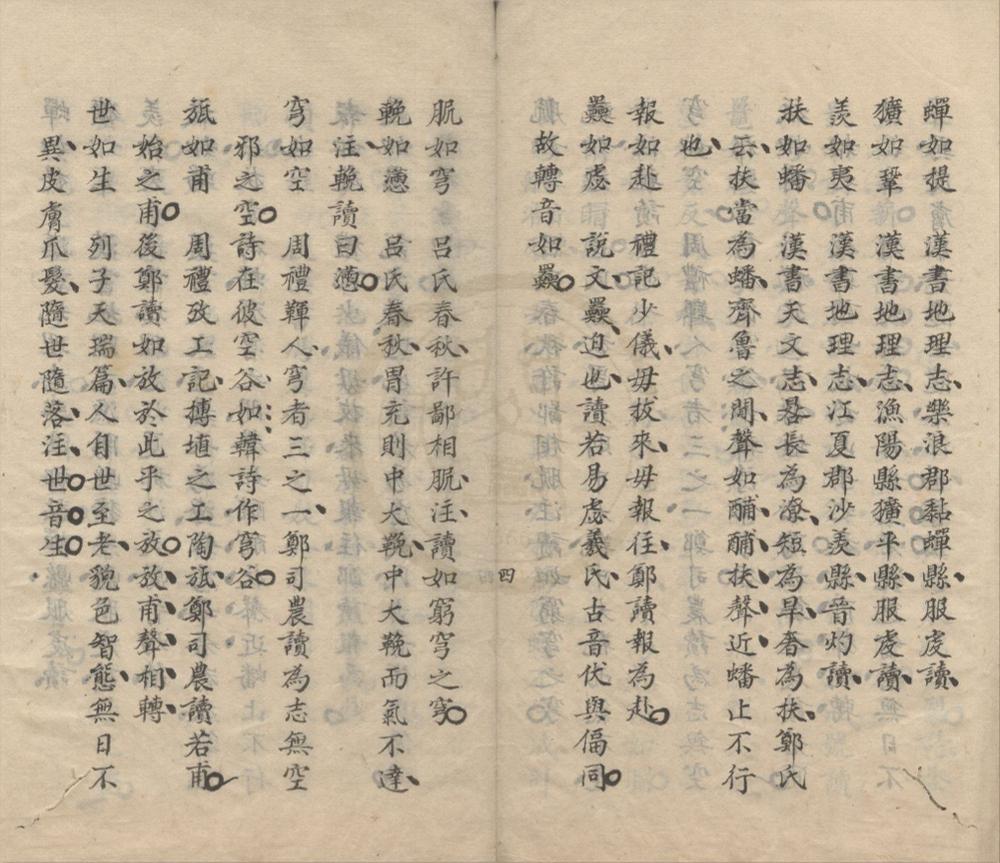 蟬如提　漢書地理志樂浪郡黏蟬縣服虔讀
獷如鞏　漢書地理志漁陽縣獷平縣服虔讀
羨如夷　漢書地理志江夏郡沙羨縣音灼讀
扶如蟠　漢書天文志晷長為潦短為旱奢為扶鄭氏
云扶當為蟠齊魯之間聲如酺酺扶聲近蟠止不行
也
報如赴　禮記少儀毋拔來毋報往鄭讀報為赴
㒍如虙　說文㒍迫也讀若易虙羲氏古音伏與偪同
故轉音如㒍
四
䏐如穹　呂氏春秋許鄙相䏐注讀如窮穹之穹
鞔如懣　呂氏春秋胃充則中大鞔中大鞔而氣不達
注鞔讀曰懣
穹如空　周禮韗人穹者三之一鄭司農讀為志無空
邪之空詩在彼空谷如韓詩作穹谷
瓬如甫　周禮攷工記摶埴之工陶瓬鄭司農讀若甫
始之甫後鄭讀如放於此乎之放放甫聲相轉
世如生　列子天瑞篇人自世至老貌色智態無日不
異皮膚爪髮隨世隨落注世音生